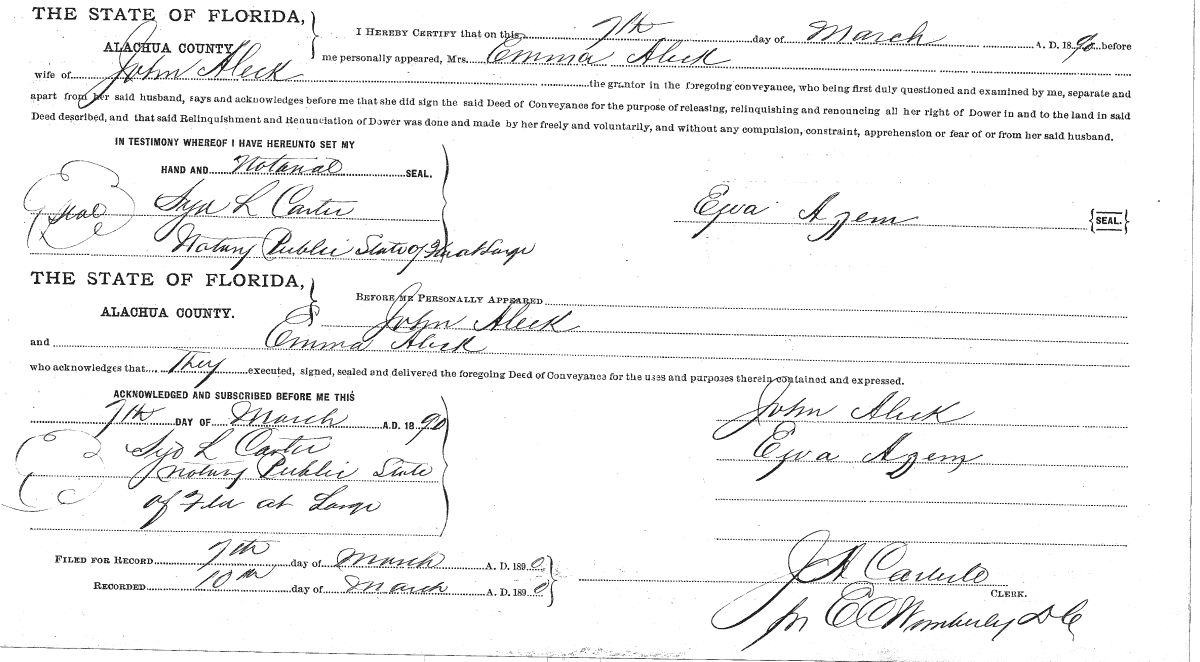 THE STATE OF FLORIDA,
ALACHUA COUNTY.
I HEREBY CERTIFY that on this 7th day of March A. D. 1890 before
me personally appeared, Mrs. Emma Aleck
wife of John Aleck the grantor in the foregoing conveyance, who being first duly questioned and examined by me, separate and
apart from her said husband, says and acknowledges before me that she did sign the said Deed of Conveyance for the purpose of releasing, relinquishing and renouncing all her right of Dower in and to the land in said
Deed described, and that said Relinquishment and Renunciation of Dower was done and made by her freely and voluntarily, and without any compulsion, constraint, apprehension or fear of or from her said husband.
IN TESTIMONY WHEREOF I HAVE HEREUNTO SET MY
HAND AND Notarial SEAL.
Seal
L Carter
Notary Public State of Fla at Large
Egva Azem {SEAL.}
THE STATE OF FLORIDA,
ALACHUA COUNTY.
BEFORE ME PERSONALLY APPEARED
John Aleck
and Emma Aleck
who acknowledges that They executed, signed, sealed and delivered the foregoing Deed of Conveyance for the uses and purposes therein contained and expressed.
ACKNOWLEDGED AND SUBSCRIBED BEFORE ME THIS
7th DAY OF March A.D. 1890
L Carter
Notary Public State
of Fla at Large
John Aleck
Egva Azem
FILED FOR RECORD 7th day of March A. D. 1890
RECORDED 10th day of March A. D. 1890
J A Carlisle
CLERK.
E C Wimberly D C